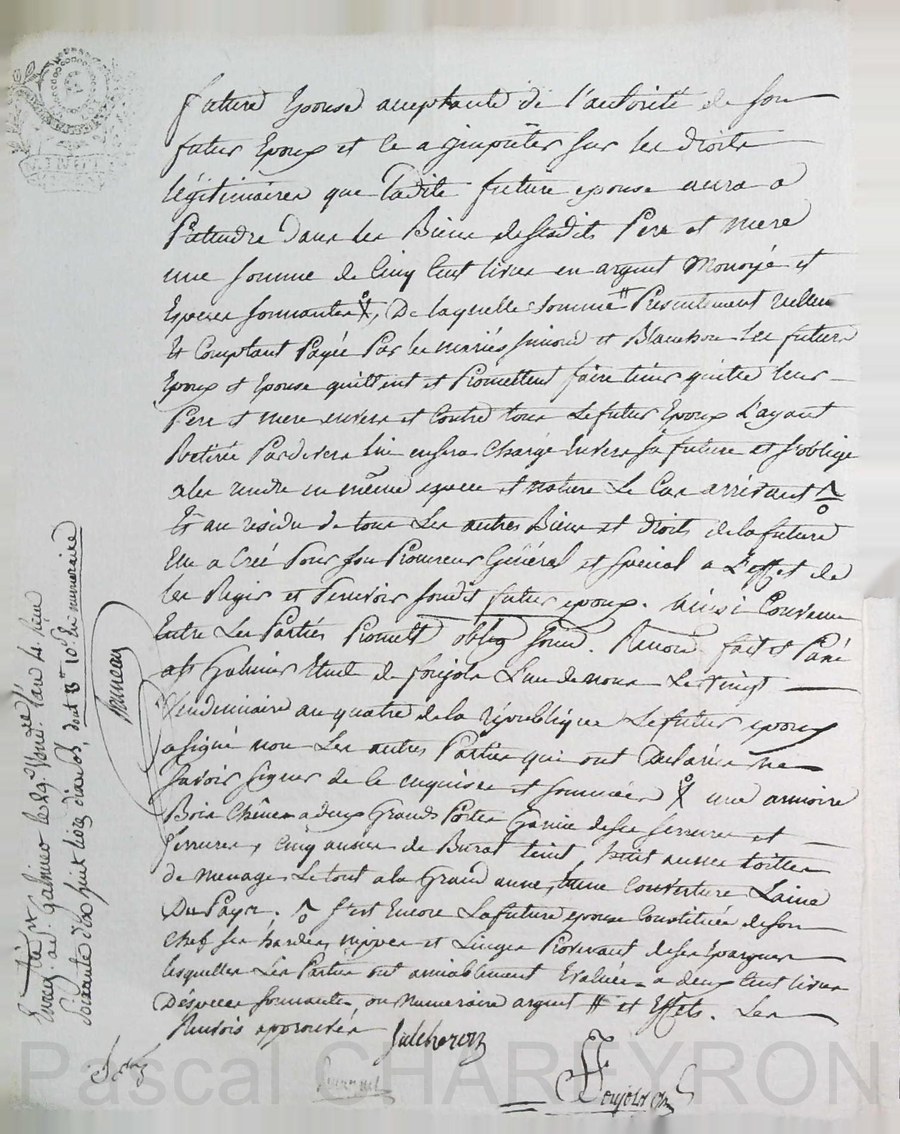 future Epouse acceptante de l'autorité de son
futur Epoux et ce a jmputer sur les droits
légitimaires que ladite future epouse aura a
Pretendre dans les Biens desdits Pere et mere
une somme de Cinq Cent livres en argent Monoyé et
Especes sonnantes, De laquelle somme Presentement
Et Comptant Payée Par les mariés et Blanchon Les futurs
Epoux et Epouse quittent et Promettent faire tenir quitte leur
Pere et mere envers et Contre tous Le futur Epoux L'ayant
Retirée Pardevers lui en sera Chargé Envers sa future et s'oblige
a les rendre en même espece et nature Le Cas arrivant
Et au residu de tous Les autres Biens et droits de la future
Elle a Créé Pour son Procureur Général et Special a L'effet de
les Regir et Percevoir sondit futur epoux. Ainsi Convenu
Entre Les Parties Promett oblig Renon. fait et Passé
a St Galmier Etude de foujols L'un de nous Le vingt
Vendemiaire an quatre de la république Le futur epoux
a signé non Les autres Parties qui ont Declaré ne
savoir signer de ce enquises et sommées une armoire
Bois Chêne a deux Grands Portes Garnie de ses serrures et
ferrures, Cinq aunes de Burat teint, huit aunes toille
de menage Le tout a la Grand aune, une Couverture Laine
Du Pays. s'est Encore La future epouse Constituée de son
Chef ses hardes, nippes et Linges Provenant de ses Epargnes
lesquelles Les Parties ont amiablement Evaluées a deux Cent livres
D'especes sonnante ou numeraire argent et Effets. Les
Renvois approuvés
Foujols
Enreg. a St Galmier le 29 Vend. l'an 4.
soixante dont 10 En numeraire
Pascal CHAREYRON